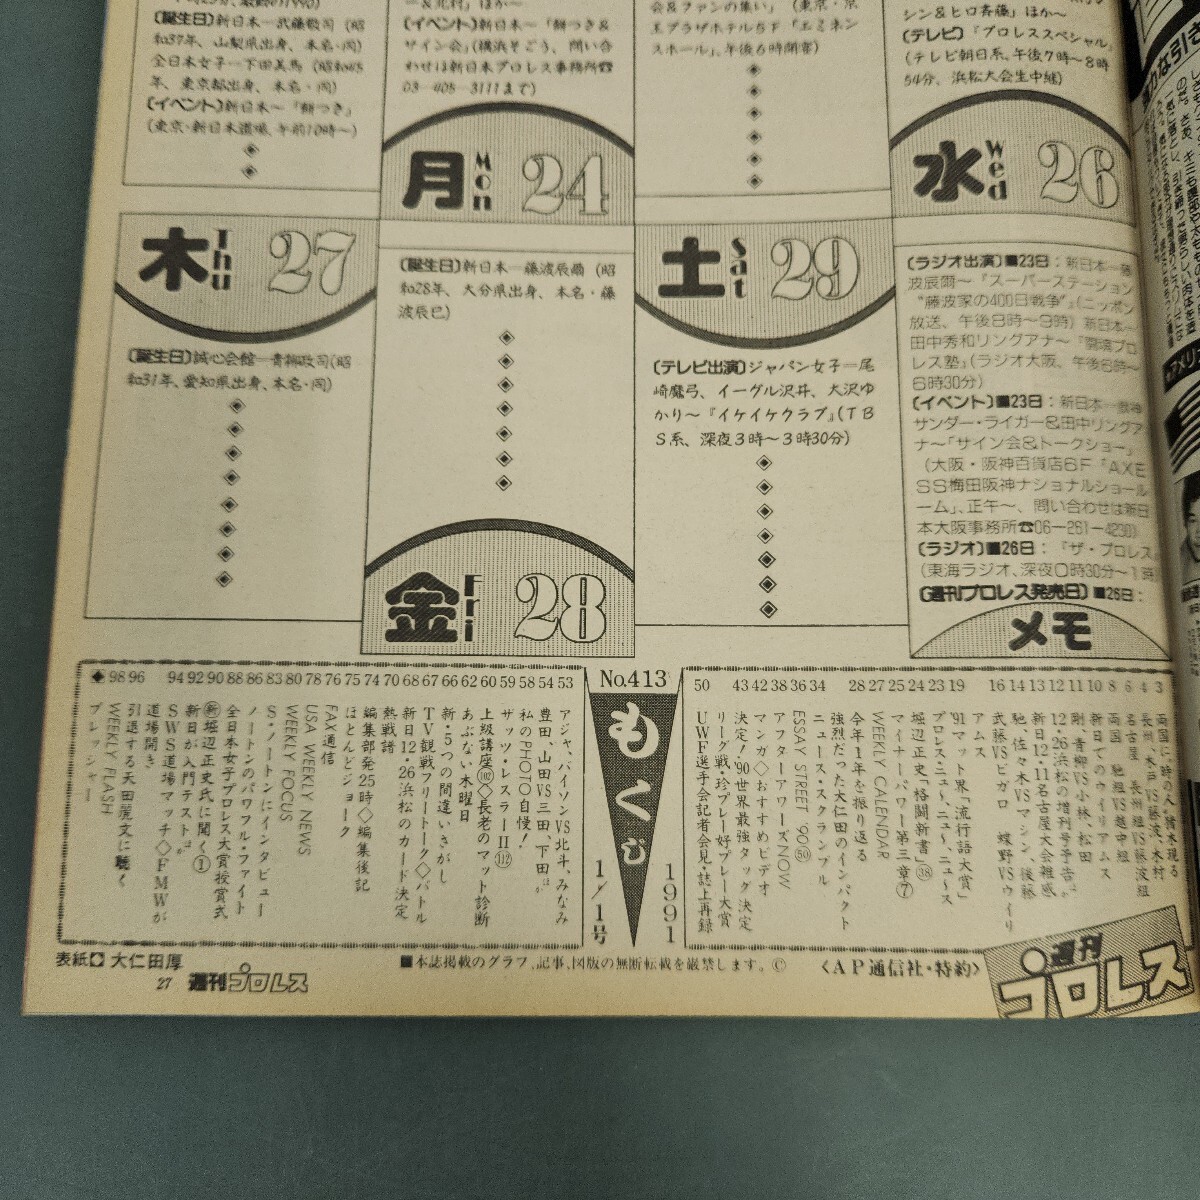 〔誕生日〕新日本―武藤敬司(昭
和37年、山梨県出身、本名・同)
全日本女子―下田美馬(昭和45
年、東京都出身、本名・同)
〔イベント〕新日本～「餅つき」
(東京・新日本道場、午前10時～)
〔イベント〕新日本～「餅つき&
サイン会」(横浜そごう、問い合
わせは新日本プロレス事務所☎
03―405―3111まで)
月 Mon 24
会&ファンの集い」(東京・京
王プラザホテル5F「エミネン
スホール」、午後6時開宴)
シン&ヒロ斉藤」ほか～
〔テレビ〕『プロレススペシャル』
(テレビ朝日系、午後7時～8時
54分、浜松大会生中継)
水 Wed 26
木 Thu 27
〔誕生日〕誠心会館―青柳政司(昭
和31年、愛知県出身、本名・同)
〔誕生日〕新日本―藤波辰爾(昭
和28年、大分県出身、本名・藤
波辰巳)
金 Fri 28
土 Sat 29
〔テレビ出演〕ジャパン女子=尾
崎魔弓、イーグル沢井、大沢ゆ
かり～『イケイケクラブ』(TB
S系、深夜3時～3時30分)
〔ラジオ出演〕■23日:新日本―藤
波辰爾～『スーパーステーション
"藤波家の400日戦争"』(ニッポン
放送、午後8時～9時)新日本～
田中秀和リングアナ～『闘魂プロ
レス塾』(ラジオ大阪、午後6時～
6時30分)
〔イベント〕■23日:新日本―獣神
サンダー・ライガー&田中リングア
ナ～「サイン会&トークショー」
(大阪・阪神百貨店6F「AXE
SS梅田阪神ナショナルショール
ーム」、正午～、問い合わせは新日
本大阪事務所☎06―261―4230)
〔ラジオ〕■26日:『ザ・プロレス』
(東海ラジオ、深夜0時30分～1時
〔週刊プロレス発売日〕■26日:
メモ
No.413
もくじ
1991
1/1号
3 両国に、時の人・猪木現る
4 長州、木戸VS藤波、木村
6 名古屋 長州組VS藤波組
8 両国 馳組VS越中組
10 新日てのウイリアムス
11 剛・青柳VS小林、松田
12 12・26浜松の増刊号予告ほか
13 新日12・11名古屋大会雑感
14 馳、佐々木VSマシン、後藤
16 武藤VSビガロ 蝶野VSウイリアムス
19 '91マット界「流行語大賞」
23 プロレス・ニュ～、ニュ～ス
24 堀辺正史「格闘新書」㊳
27 マイナーパワー第三章⑦
WEEKLY CALENDAR
28 今年1年を振り返る
強烈だった大仁田のインパクト
34 ニュース・スクランブル
36 ESSAY STREET '90㊿
38 アフターアワーズNOW
42 マンガ◇おすすめビデオ
43 決定!'90世界最強タッグ決定リーグ戦・珍プレー好プレー大賞
50 UWF選手会記者会見・誌上再録
53 アジャ、バイソンVS北斗、みなみ
54 豊田、山田VS三田、下田ほか
58 私のPHOTO自慢!
59 ザッツ・レスラーⅡ(112)
60 上級講座(102)◇長老のマット診断
62 あぶない木曜日
66 新・5つの間違いさがし
67 TV観戦フリートーク◇バトル
68 新日12・26浜松のカード決定
70 熱戦譜
74 編集部発25時◇編集後記
75 ほとんどジョーク
76 FAX通信
78 USA WEEKLY NEWS
80 WEEKLY FOCUS
83 S・ノートンにインタビュー
86 ノートンのパワフル・ファイト
88 全日本女子プロレス大賞授賞式
90 新堀辺正史氏に聞く①
92 新日が入門テストほか
94 SWS道場マッチ◇FMWが道場開き
96 引退する天田麗文に聴く
98 WEEKLY FLASH
◈ プレッシャー
表紙◘大仁田厚
■本誌掲載のグラフ、記事、図版の無断転載を厳禁します。©
〈AP通信社・特約〉
27 週刊プロレス
週刊プロレス